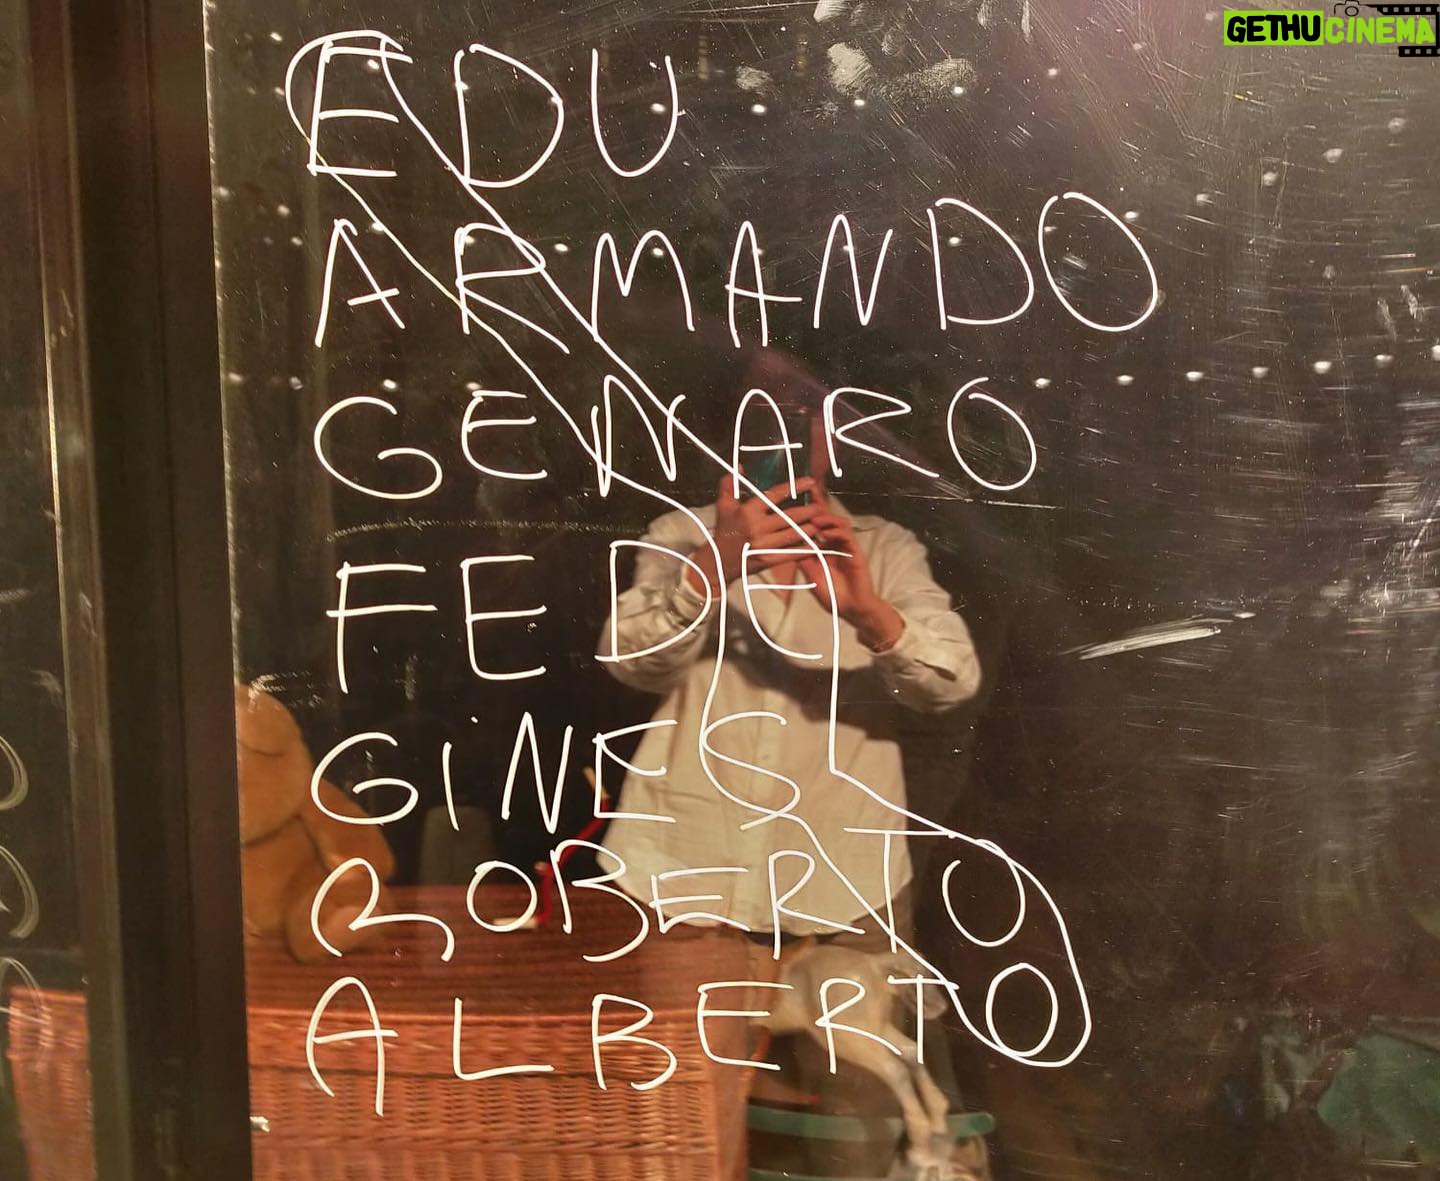 GETHUCINEMA
EDU
ARMANDO
GENARO
FEDE
GINES
ROBERTO
ALBERTO